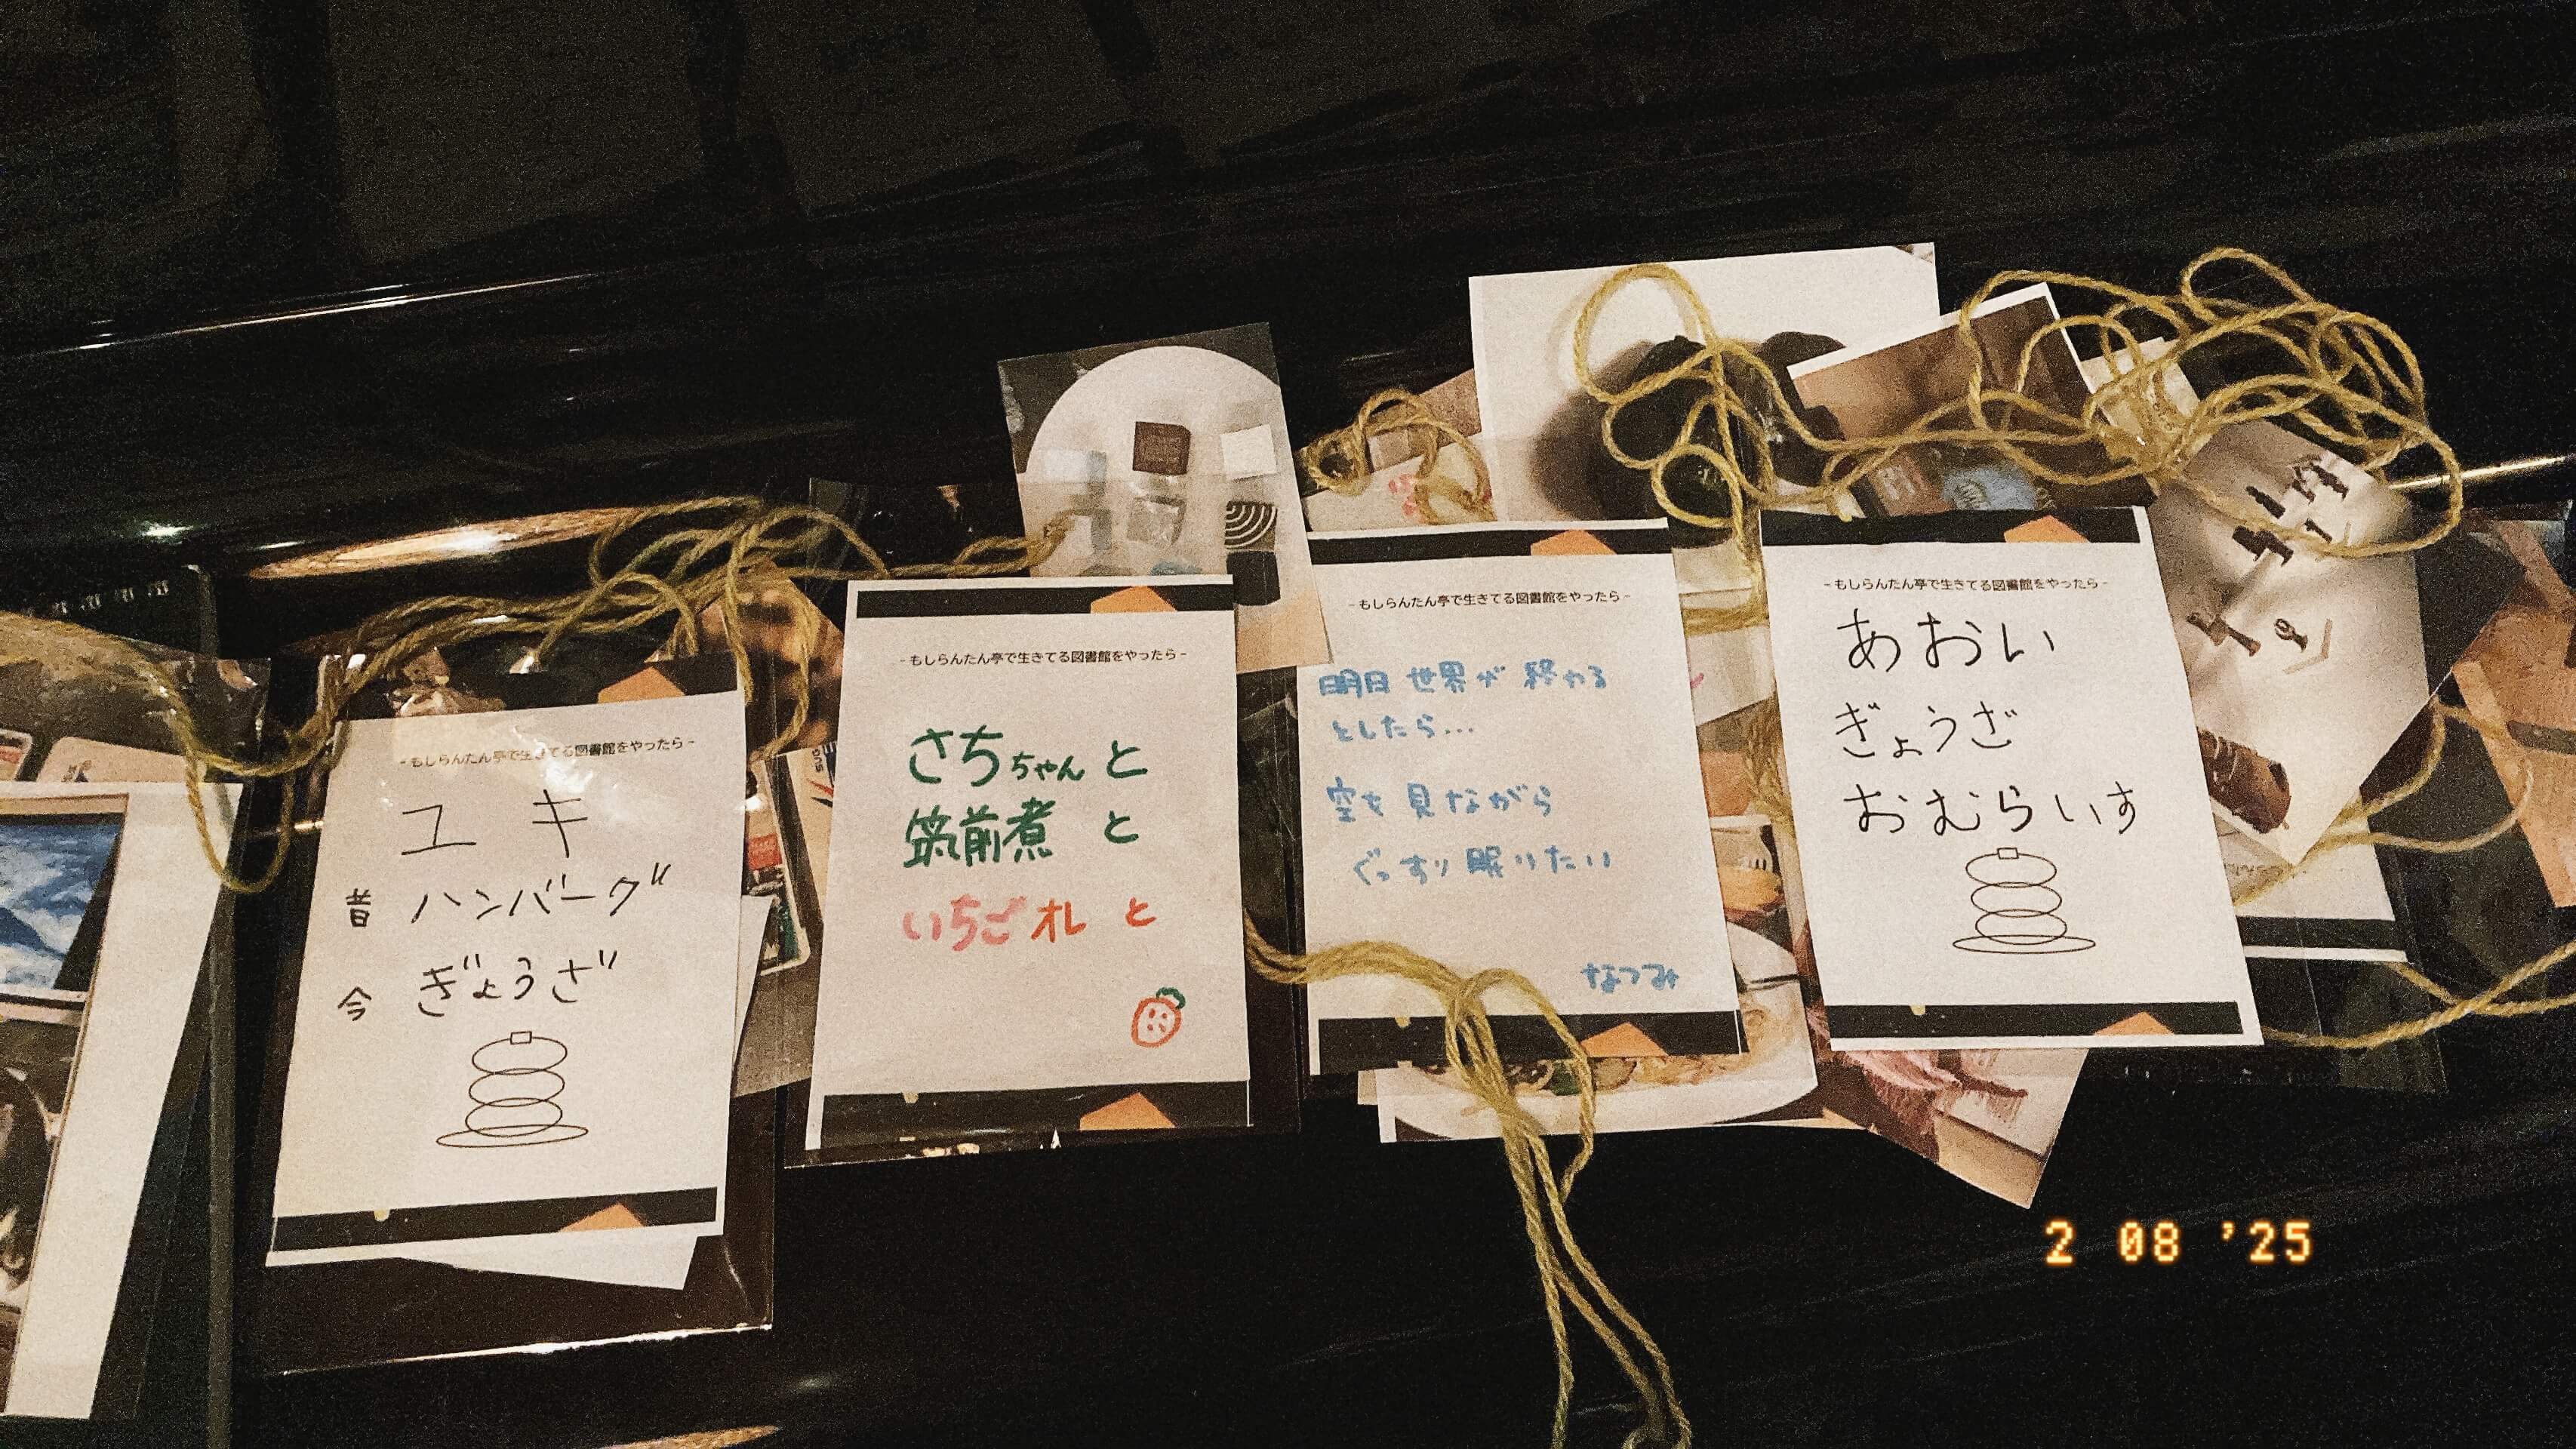 -もしらんたん亭で生きてる図書館をやったら-
ユキ
昔 ハンバーグ
今 ぎょうざ
-もしらんたん亭で生きてる図書館をやったら-
さちちゃんと
筑前煮 と
いちごオレ と
-もしらんたん亭で生きてる図書館をやったら-
明日 世界が 終わる
としたら...
空を 見ながら
ぐっすり 眠りたい
なつみ
-もしらんたん亭で生きてる図書館をやったら-
あおい
ぎょうざ
おむらいす
2 08 '25